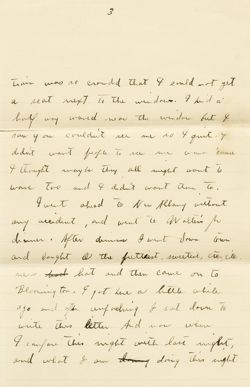 3
train was so crowded that I could not get
a seat next to the window. I had a
half way waved near the window but I
saw you couldn't see me so I quit. I
didn't want people to see me wave 'cause
I thought maybe they all might want to
wave too and I didn't want them to.
I went ahead to New Albany without
any accident, and went to Walter's for
dinner. After dinner I went down town
and bought the cutest, sweetest,
new hat and then came on to
Bloomington. I got here a little while
ago and after unpacking I sat down to
write this letter. And now when
I compare this night with last night,
and what I am doing this night